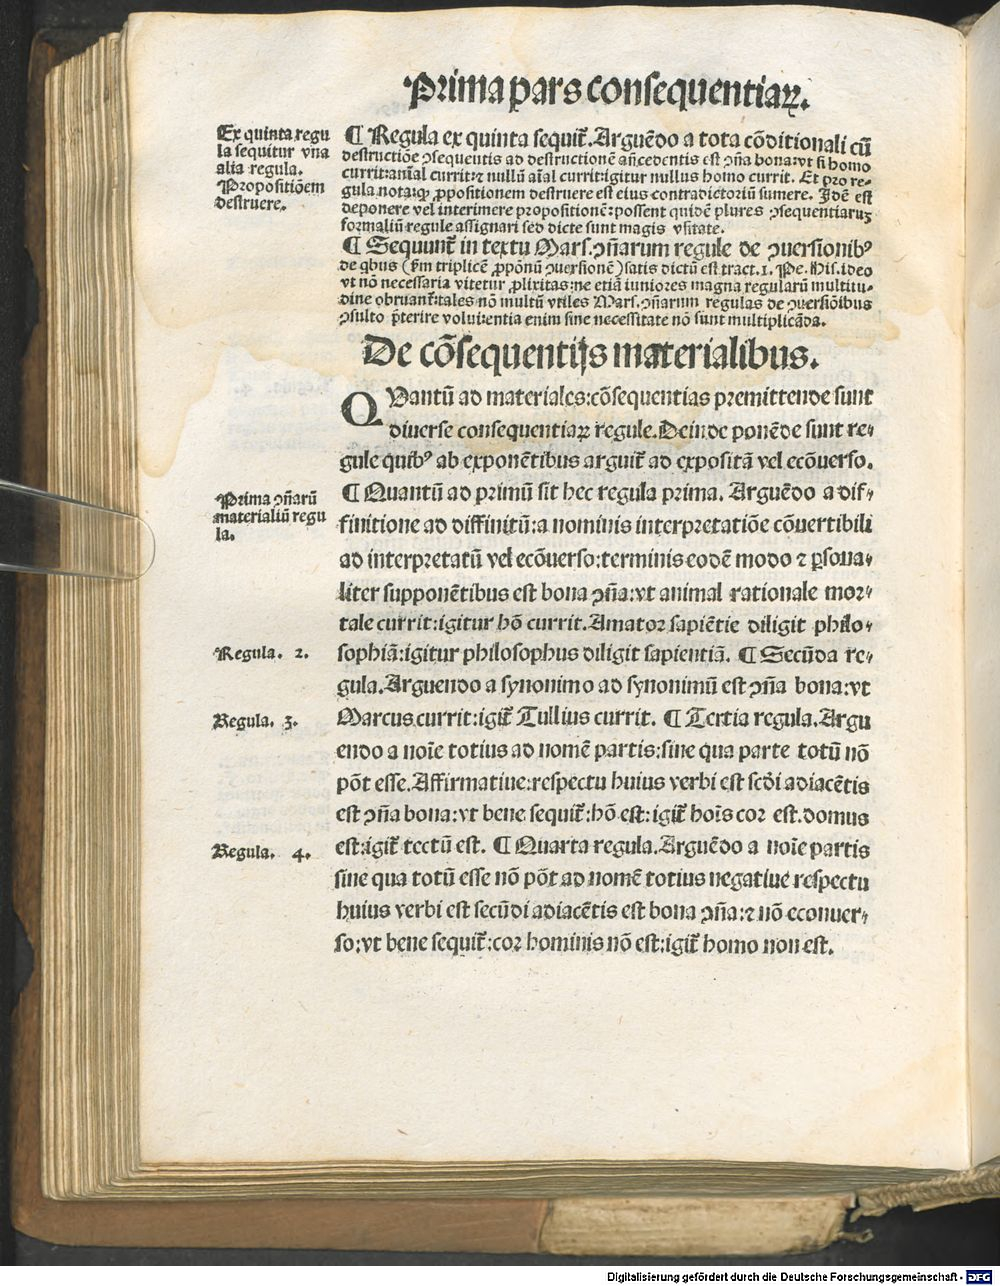 Prima pars consequentiaꝝ.
Ex quinta regu
la sequitur vna
alia regula.
Propositiōem
destruere.
¶ Regula ex quinta sequit᷑. Arguēdo a tota cōditionali cū
destructiōe ꝯsequentis ad destructionē añcedentis est ꝯña bona: vt si homo
currit: aīal currit: ⁊ nullū aīal currit: igitur nullus homo currit. Et pro re⸗
gula nota: ꝙ ꝓpositionem destruere est eius contradictoriū sumere. Idē est
deponere vel interimere propositionē: possent quidē plures ꝯsequentiaruꝫ
formaliū regule assignari sed dicte sunt magis vsitate.
¶ Sequunt᷑ in textu Mars. ꝯñarum regule de ꝯuersionibꝰ
de qbus (ẜm triplicē ꝓpōnū ꝯuersionē) satis dictū est tract. 1. Pe. His. ideo
vt nō necessaria vitetur ꝓlixitas: ne etiā iuniores magna regularū multitu⸗
dine obruant᷑: tales nō multū vtiles Mars. ꝯñarum regulas de ꝯuersiōibus
ꝯsulto p̄terire volui: entia enim sine necessitate nō sunt multiplicāda.
De cōsequentijs materialibus.
QVantū ad materiales: cōsequentias premittende sunt
diuerse consequentiaꝝ regule. Deinde ponēde sunt re⸗
gule quibꝰ ab exponētibus arguit᷑ ad expositā vel ecōuerso.
Prima ꝯñarū
materialiū regu
la.
¶ Quantū ad primū sit hec regula prima. Arguēdo a dif⸗
finitione ad diffinitū: a nominis interpretatiōe cōuertibili
ad interpretatū vel ecōuerso: terminis eodē modo ⁊ ꝑsona⸗
liter supponētibus est bona ꝯña: vt animal rationale mor⸗
tale currit: igitur hō currit. Amator sapiētie diligit philo⸗
Regula. 2.
sophiā: igitur philosophus diligit sapientiā. ¶ Secūda re⸗
gula. Arguendo a synonimo ad synonimū est ꝯña bona: vt
Regula. 3.
Marcus currit: igit᷑ Tullius currit. ¶ Tertia regula. Argu
endo a noīe totius ad nomē partis: sine qua parte totū nō
pōt esse. Affirmatiue: respectu huius verbi est scdi adiacētis
est ꝯña bona: vt bene sequit᷑: hō est: igit᷑ hoīs cor est. domus
Regula. 4.
est: igit᷑ tectū est. ¶ Quarta regula. Arguēdo a noīe partis
sine qua totū esse nō pōt ad nomē totius negatiue respectu
huius verbi est secūdi adiacētis est bona ꝯña: ⁊ nō econuer⸗
so: vt bene sequit᷑: cor hominis nō est: igit᷑ homo non est.
Digitalisierung gefördert durch die Deutsche Forschungsgemeinschaft - DFG